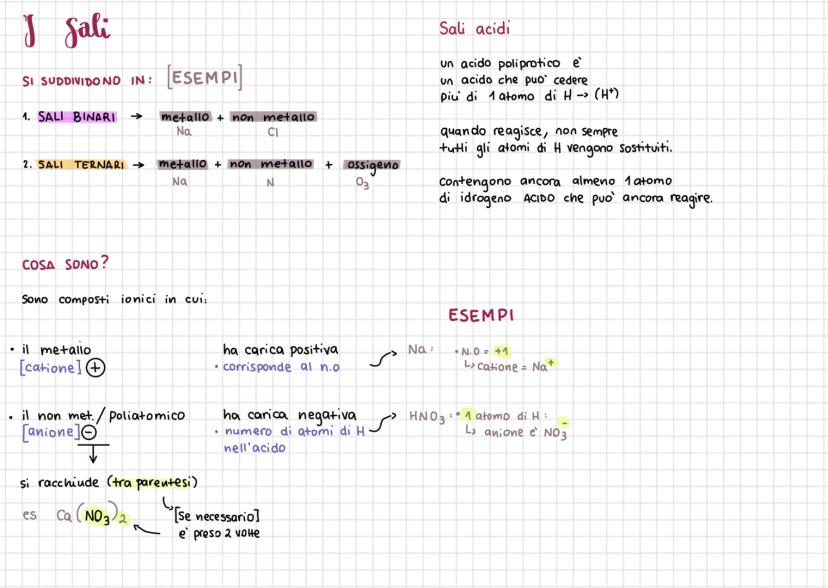 I Sali
SI SUDDIVIDONO IN: [ESEMPI]
1. SALI BINARI → metallo + non metallo
Na Cl
2. SALI TERNARI → metallo + non metallo + ossigeno
Na N O₃
COSA SONO?
Sono composti ionici in cui:
• il metallo ha carica positiva
[catione] ⊕ • corrisponde al n.o
• il non met./poliatomico ha carica negativa
[anione] ⊖ • numero di atomi di H
nell'acido
si racchiude (tra parentesi)
[Se necessario]
es Ca(NO₃)₂
è preso 2 volte
Sali acidi
un acido poliprotico è
un acido che può cedere
più di 1 atomo di H → (H⁺)
quando reagisce, non sempre
tutti gli atomi di H vengono sostituiti.
contengono ancora almeno 1 atomo
di idrogeno ACIDO che può ancora reagire.
ESEMPI
Na: • N.O = +1
↳ catione = Na⁺
HNO₃: • 1 atomo di H:
↳ anione è NO₃⁻